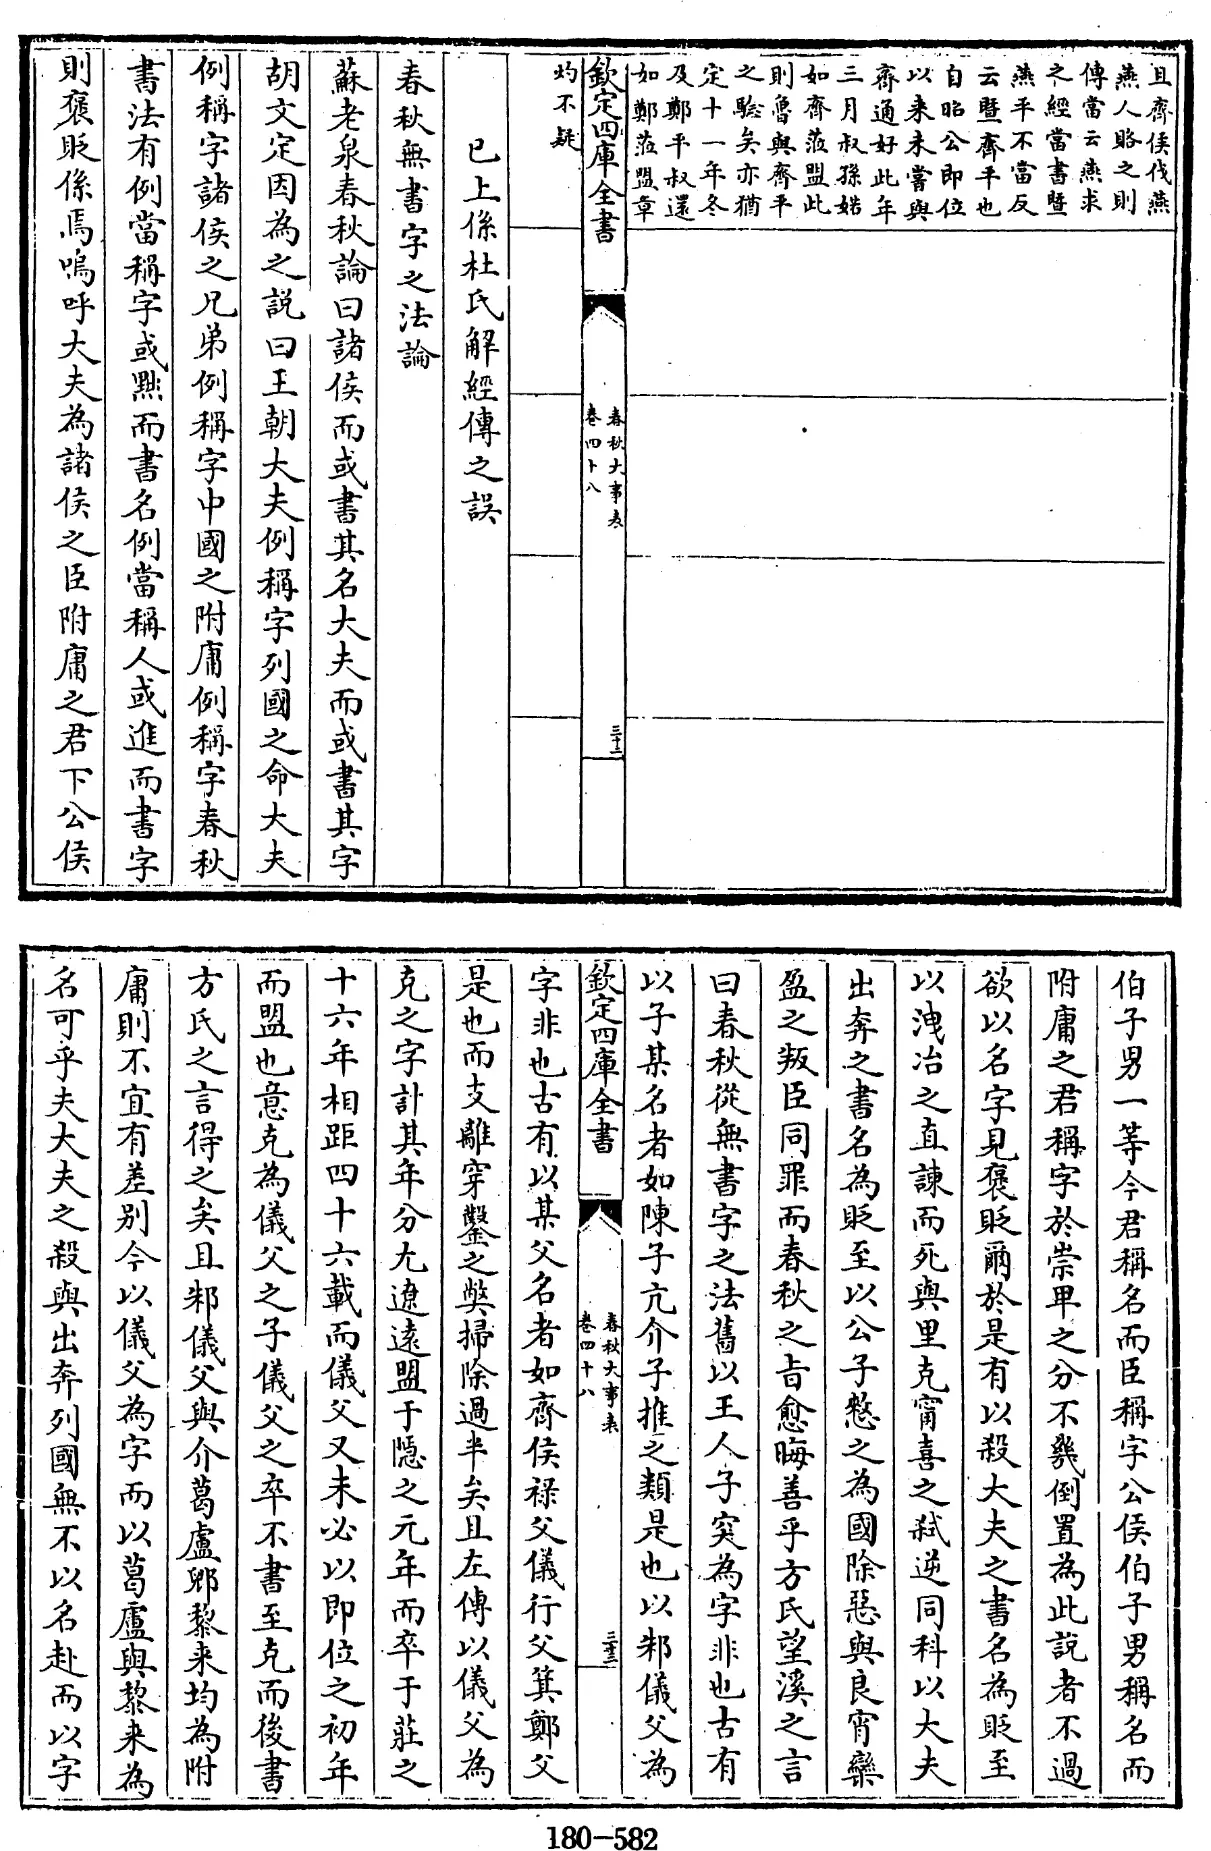 且齊侯伐燕
燕人賂之則
傳當云燕求
之經當書曁
燕平不當反
云曁齊平也
自昭公即位
以來未嘗與
齊通好此年
三月叔孫婼
如齊蒞盟此
則魯與齊平
之驗矣亦猶
定十一年冬
及鄭平叔還
如鄭蒞盟章
灼不疑
欽定四庫全書
春秋大事表
卷四十八
三十二
已上係杜氏解經傳之誤
春秋無書字之法論
蘇老泉春秋論曰諸侯而或書其名大夫而或書其字
胡文定因為之説曰王朝大夫例稱字列國之命大夫
例稱字諸侯之兄弟例稱字中國之附庸例稱字春秋
書法有例當稱字或黜而書名例當稱人或進而書字
則褒貶係焉嗚呼大夫為諸侯之臣附庸之君下公侯
伯子男一等今君稱名而臣稱字公侯伯子男稱名而
附庸之君稱字於崇卑之分不幾倒置為此説者不過
欲以名字見褒貶爾於是有以殺大夫之書名為貶至
以洩冶之直諫而死與里克甯喜之弑逆同科以大夫
出奔之書名為貶至以公子憖之為國除惡與良宵欒
盈之叛臣同罪而春秋之旨愈晦善乎方氏望溪之言
曰春秋從無書字之法舊以王人子突為字非也古有
以子某名者如陳子亢介子推之類是也以邾儀父為
欽定四庫全書
春秋大事表
卷四十八
三十三
字非也古有以某父名者如齊侯祿父儀行父箕鄭父
是也而支離穿鑿之獘掃除過半矣且左傳以儀父為
克之字計其年分尢遼遠盟于隱之元年而卒于莊之
十六年相距四十六載而儀父又未必以即位之初年
而盟也意克為儀父之子儀父之卒不書至克而後書
方氏之言得之矣且邾儀父與介葛盧郳黎來均為附
庸則不宜有差别今以儀父為字而以葛盧與黎來為
名可乎夫大夫之殺與出奔列國無不以名赴而以字
180-582